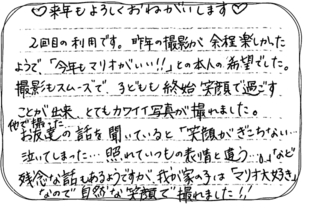 ♡来年もよろしくおねがいします♡
2回目の利用です。昨年の撮影が余程楽しかった
ようで「今年もマリオがいい!!」との本人の希望でした。
撮影もスムーズで、子どもも終始笑顔で過ごす
ことが出来、とてもカワイイ写真が撮れました。
他で撮ったお友達の話を聞いていると「笑顔がぎこちない…
泣いてしまった…照れていつもの表情と違う…。」など
残念な話もあるようですが、我が家の子は「マリオ大好き」
なので自然な笑顔で撮れました!!